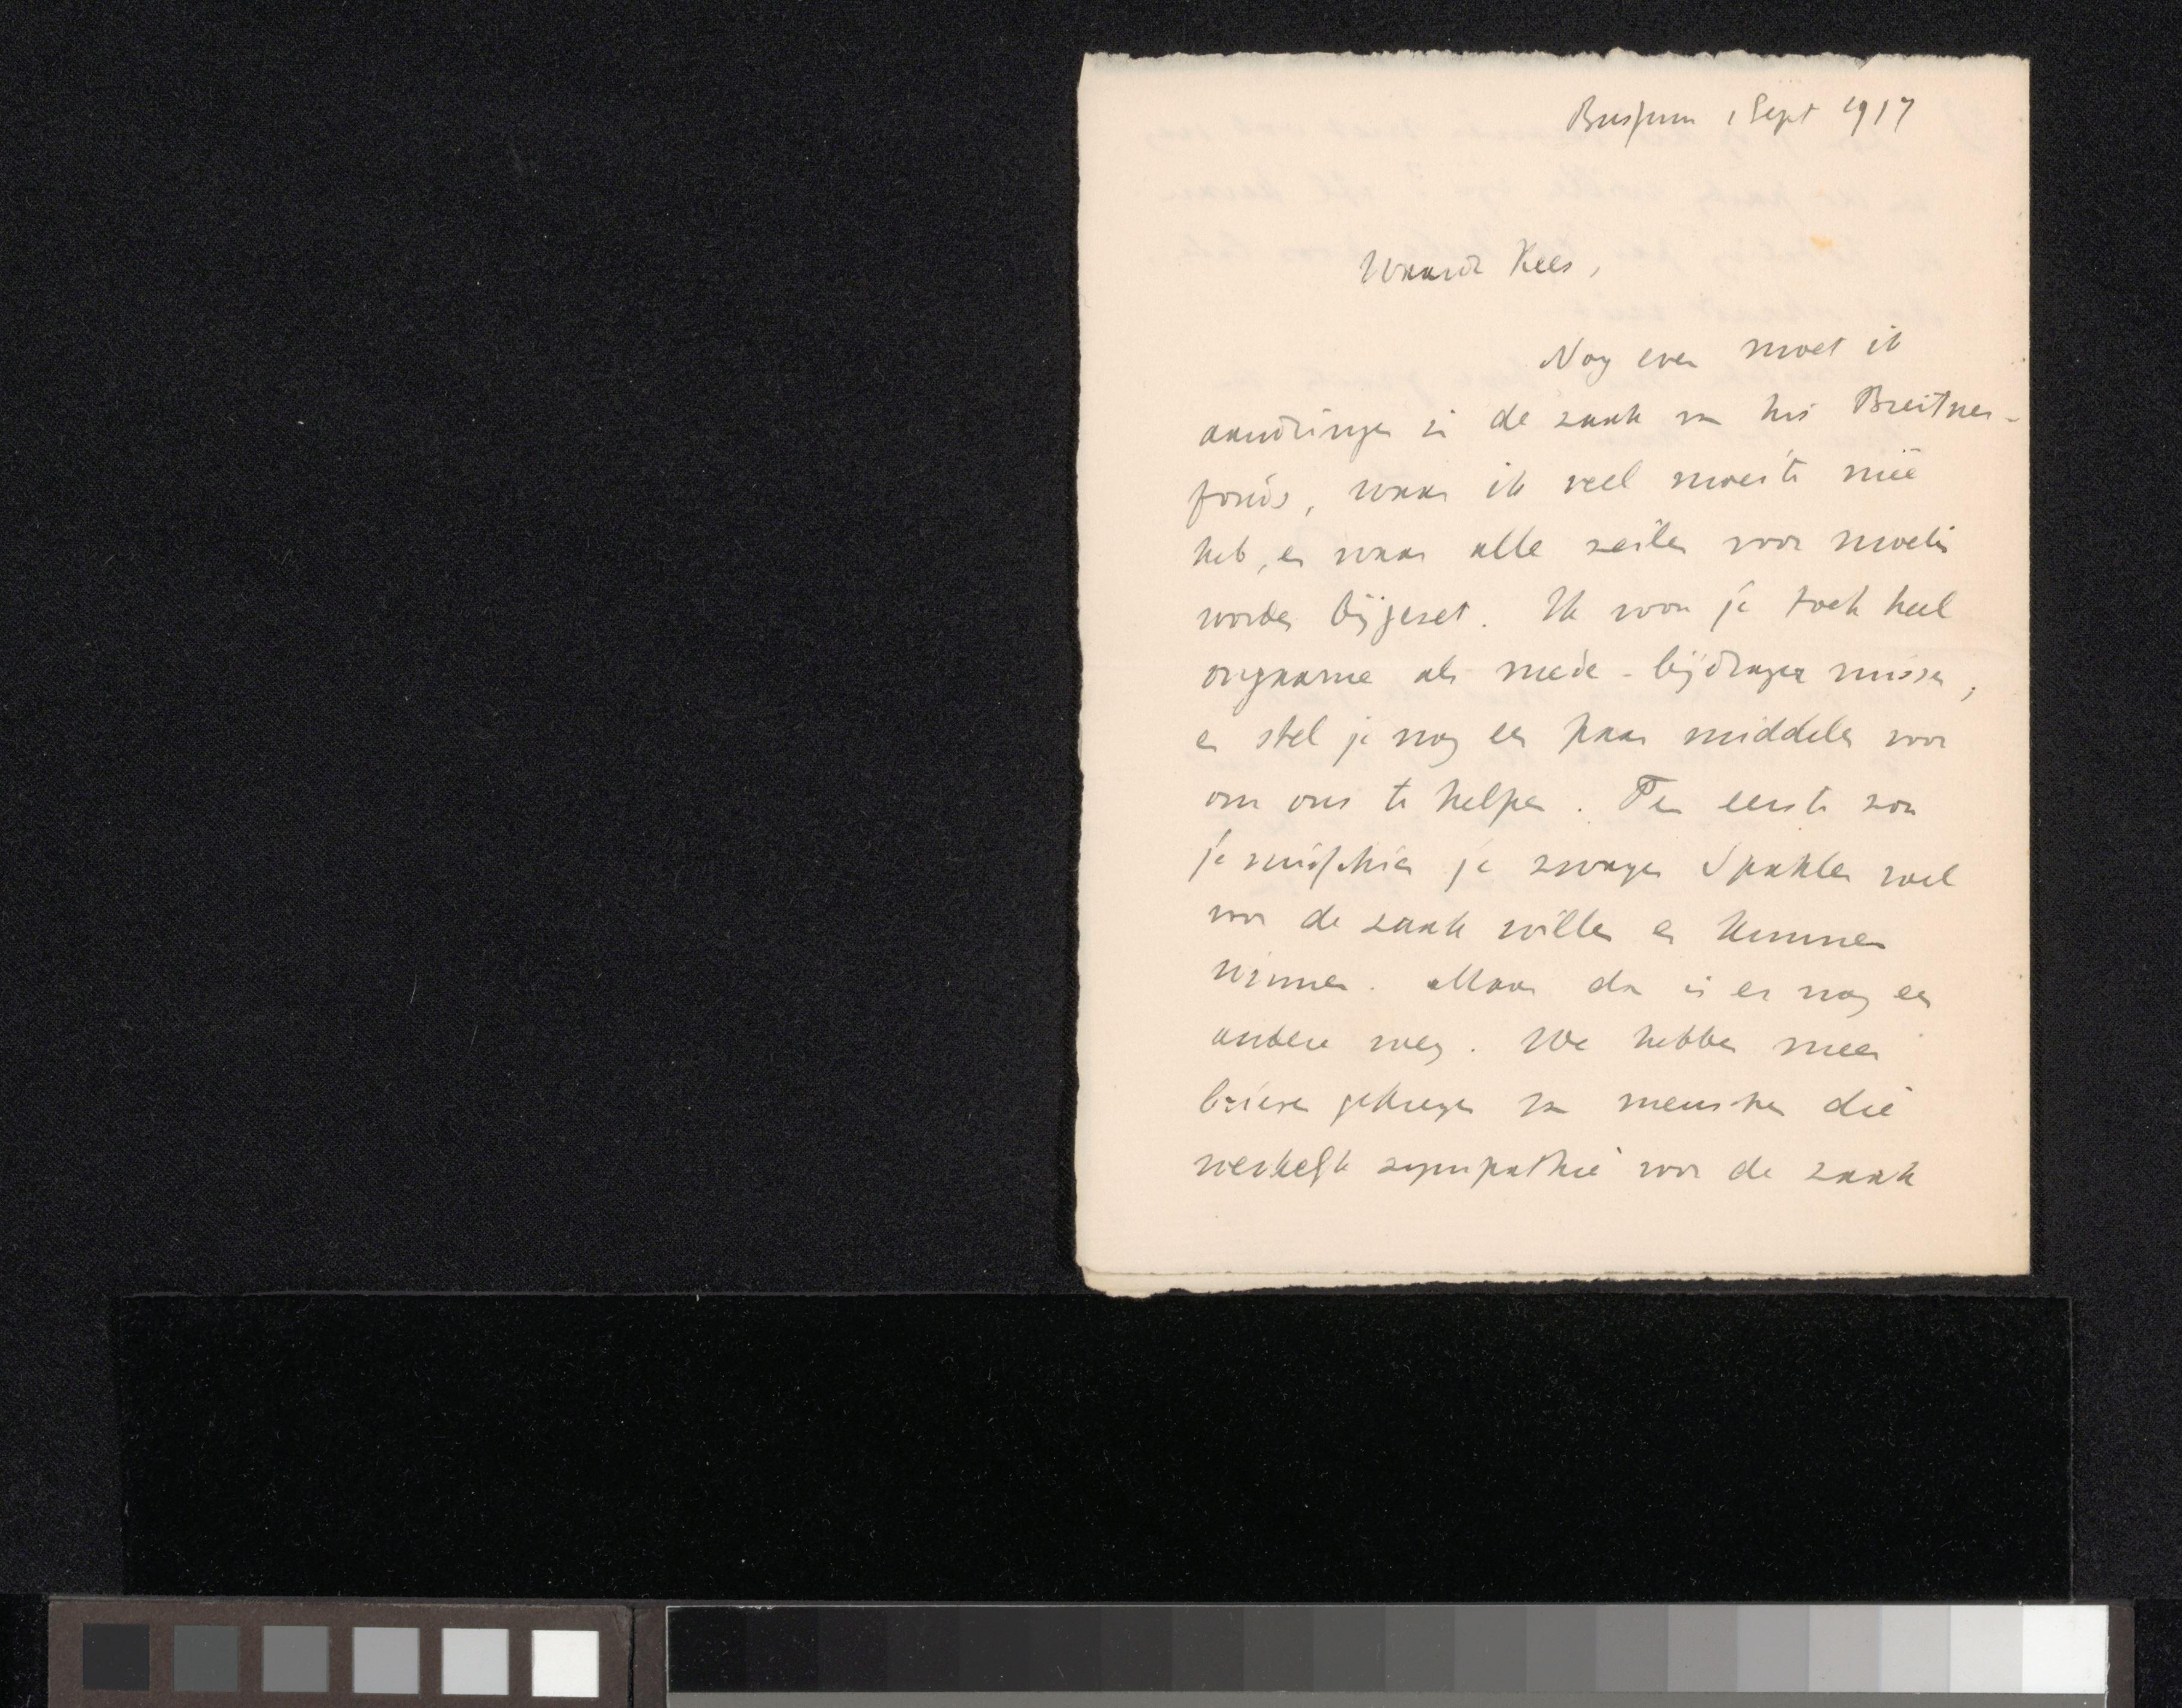 Bussum 1 Sept 1917
Waarde Kees,
Nog even moet ik
aandringen in de zaak van het Breitner-
fonds, waar ik veel moeite meê
heb, en waar alle zeilen voor moeten
worden bijgezet. Ik zou je toch heel
ongaarne als mede-bijdrager missen,
en stel je nog een paar middelen voor
om ons te helpen. Ten eerste zou
je misschien je zwager Spakler wel
voor de zaak willen en kunnen
winnen. Maar dan is er nog een
andere weg. We hebben meer
brieven gekregen van menschen die
werkelijk sympathie voor de zaak